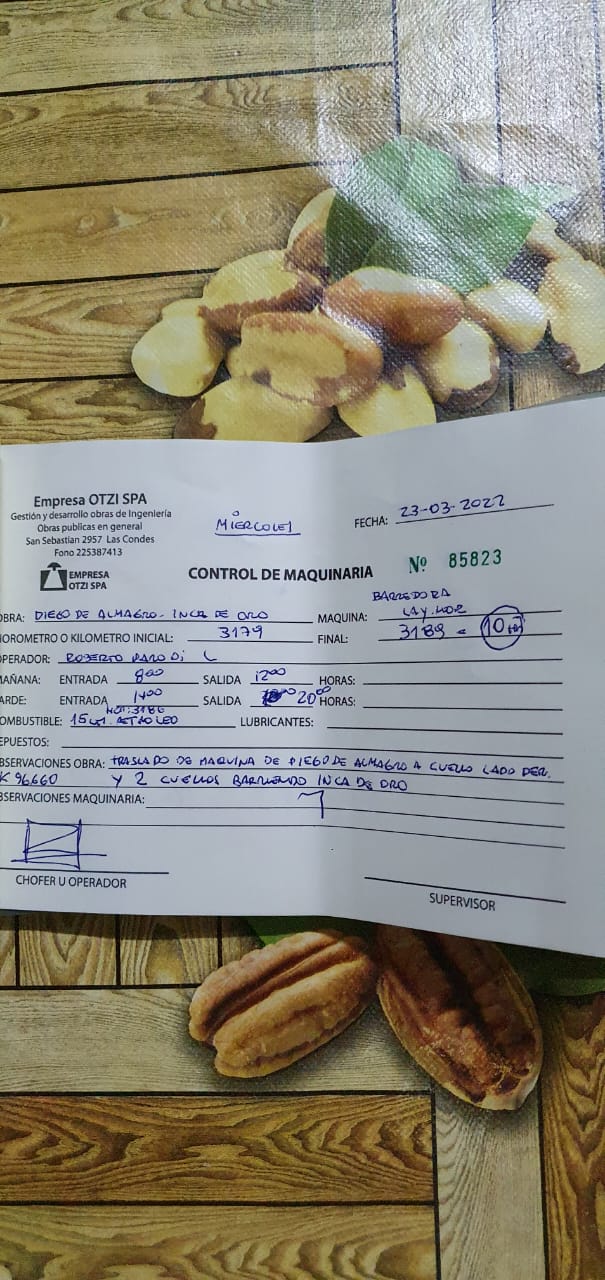 Empresa OTZI SPA
Gestión y desarrollo obras de Ingeniería
Obras publicas en general
San Sebastian 2957 Las Condes
Fono 225387413
EMPRESA
OTZI SPA
MIERCOLES
FECHA: 23-03-2022
CONTROL DE MAQUINARIA
Nº 85823
BARREDORA
OBRA: DIEGO DE ALMAGRO - INCA DE ORO MAQUINA: LAY-MOR
HOROMETRO O KILOMETRO INICIAL: 3179 FINAL: 3189 = 10
OPERADOR: ROBERTO
MAÑANA: ENTRADA 800 SALIDA 1200 HORAS:
TARDE: ENTRADA 1400 SALIDA 2000 HORAS:
3186
COMBUSTIBLE: 15 PETROLEO LUBRICANTES:
REPUESTOS:
OBSERVACIONES OBRA: TRASLADO DE MAQUINA DE DIEGO DE ALMAGRO A CUELLO LADO DER.
K 96.660 Y 2 CUELLOS BARRIENDO INCA DE ORO
OBSERVACIONES MAQUINARIA:
CHOFER U OPERADOR
SUPERVISOR